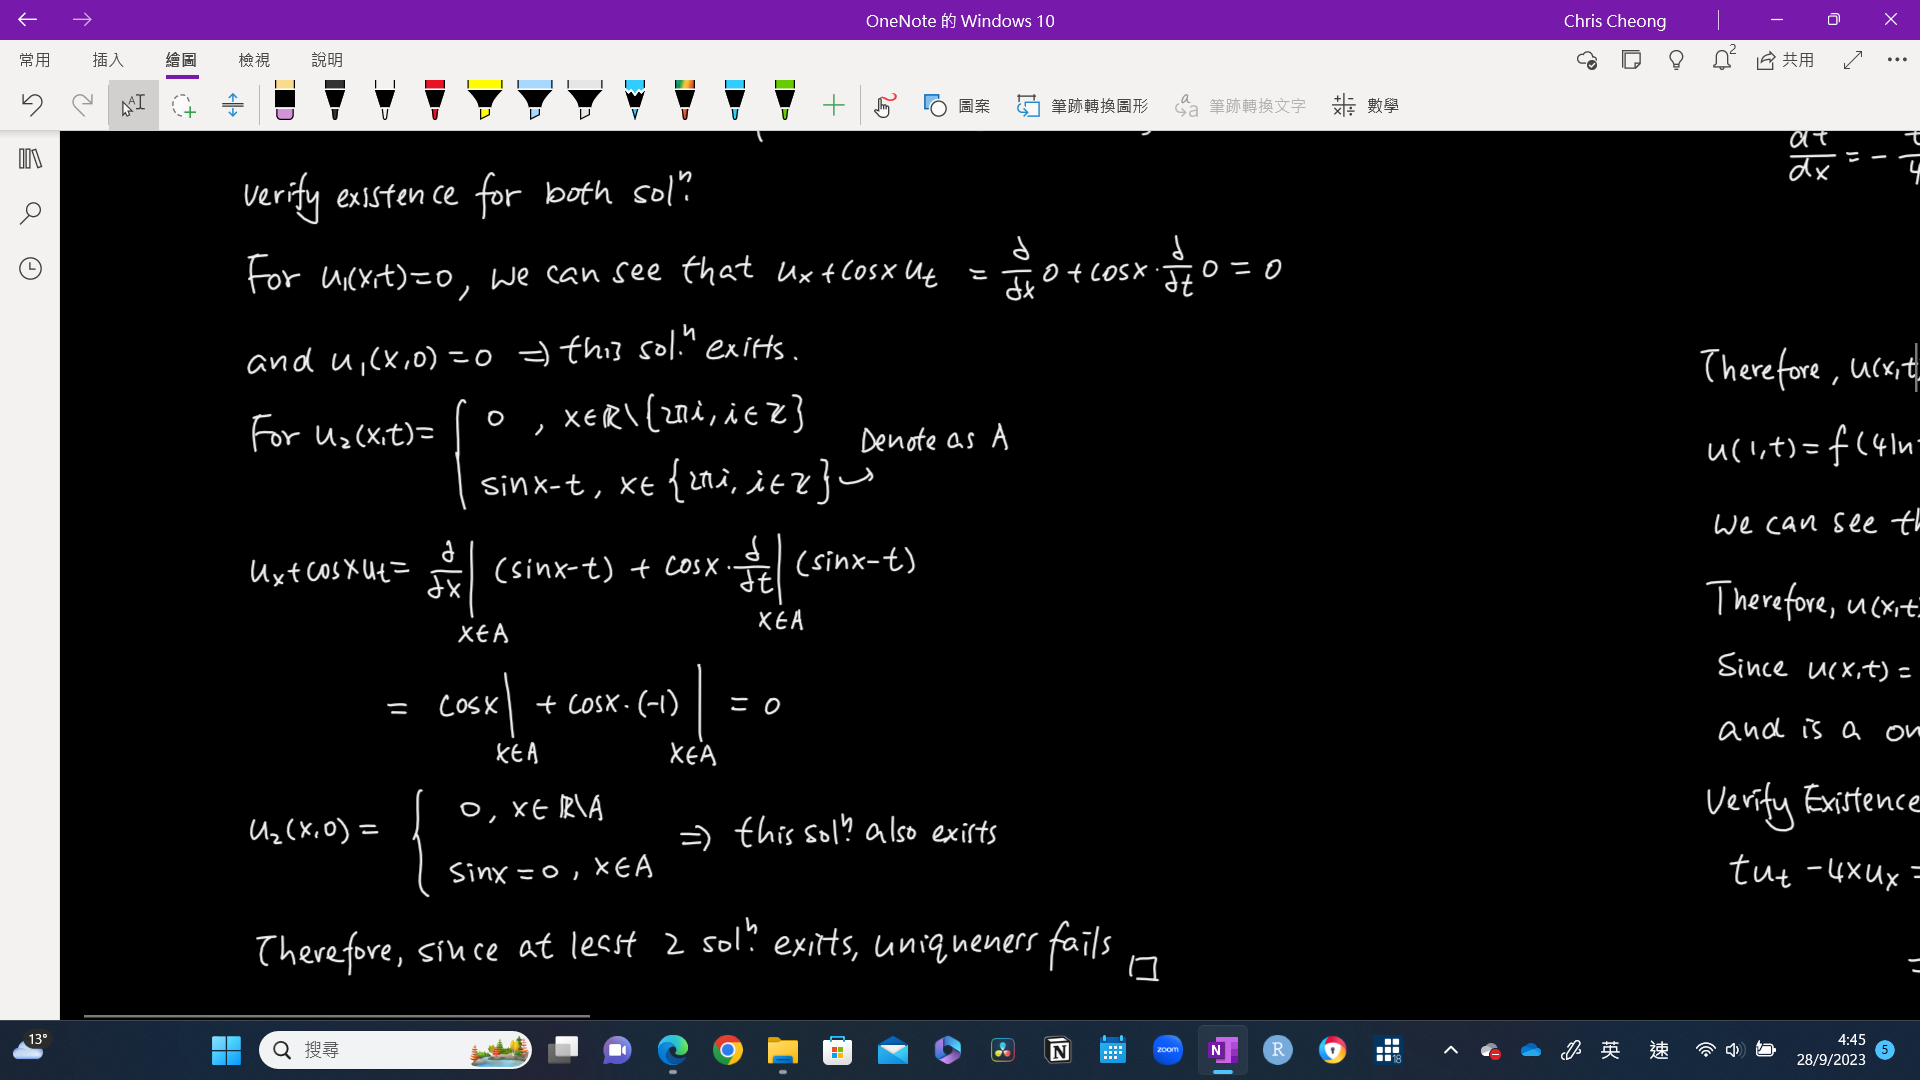 OneNote 的 Windows 10
Chris Cheong
常用 插入 繪圖 檢視 說明
2
共用
圖案 筆跡轉換圖形 筆跡轉換文字 數學
dt/dx = -
Verify existence for both solⁿ.
For u₁(x,t)=0, we can see that uₓ+cosx uₜ = ∂/∂x 0 + cosx · ∂/∂t 0 = 0
and u₁(x,0)=0 ⇒ this sol.ⁿ exists.
For u₂(x,t)= { 0 , x∈ℝ\{2πi, i∈ℤ}
sinx-t, x∈{2πi, i∈ℤ} → Denote as A
uₓ+cosx uₜ= ∂/∂x | x∈A (sinx-t) + cosx · ∂/∂t | x∈A (sinx-t)
= cosx | x∈A + cosx·(-1) | x∈A = 0
u₂(x,0) = { 0, x∈ℝ\A
sinx=0, x∈A ⇒ this solⁿ. also exists
Therefore, since at least 2 solⁿ. exists, uniqueness fails □
Therefore, u(x,t
u(1,t)=f(4ln
we can see th
Therefore, u(x,t
Since u(x,t)=
and is a on
Verify Existence
tuₜ -4xuₓ =
=
13°
搜尋
zoom
N
R
18
英
速
4:45
28/9/2023
5